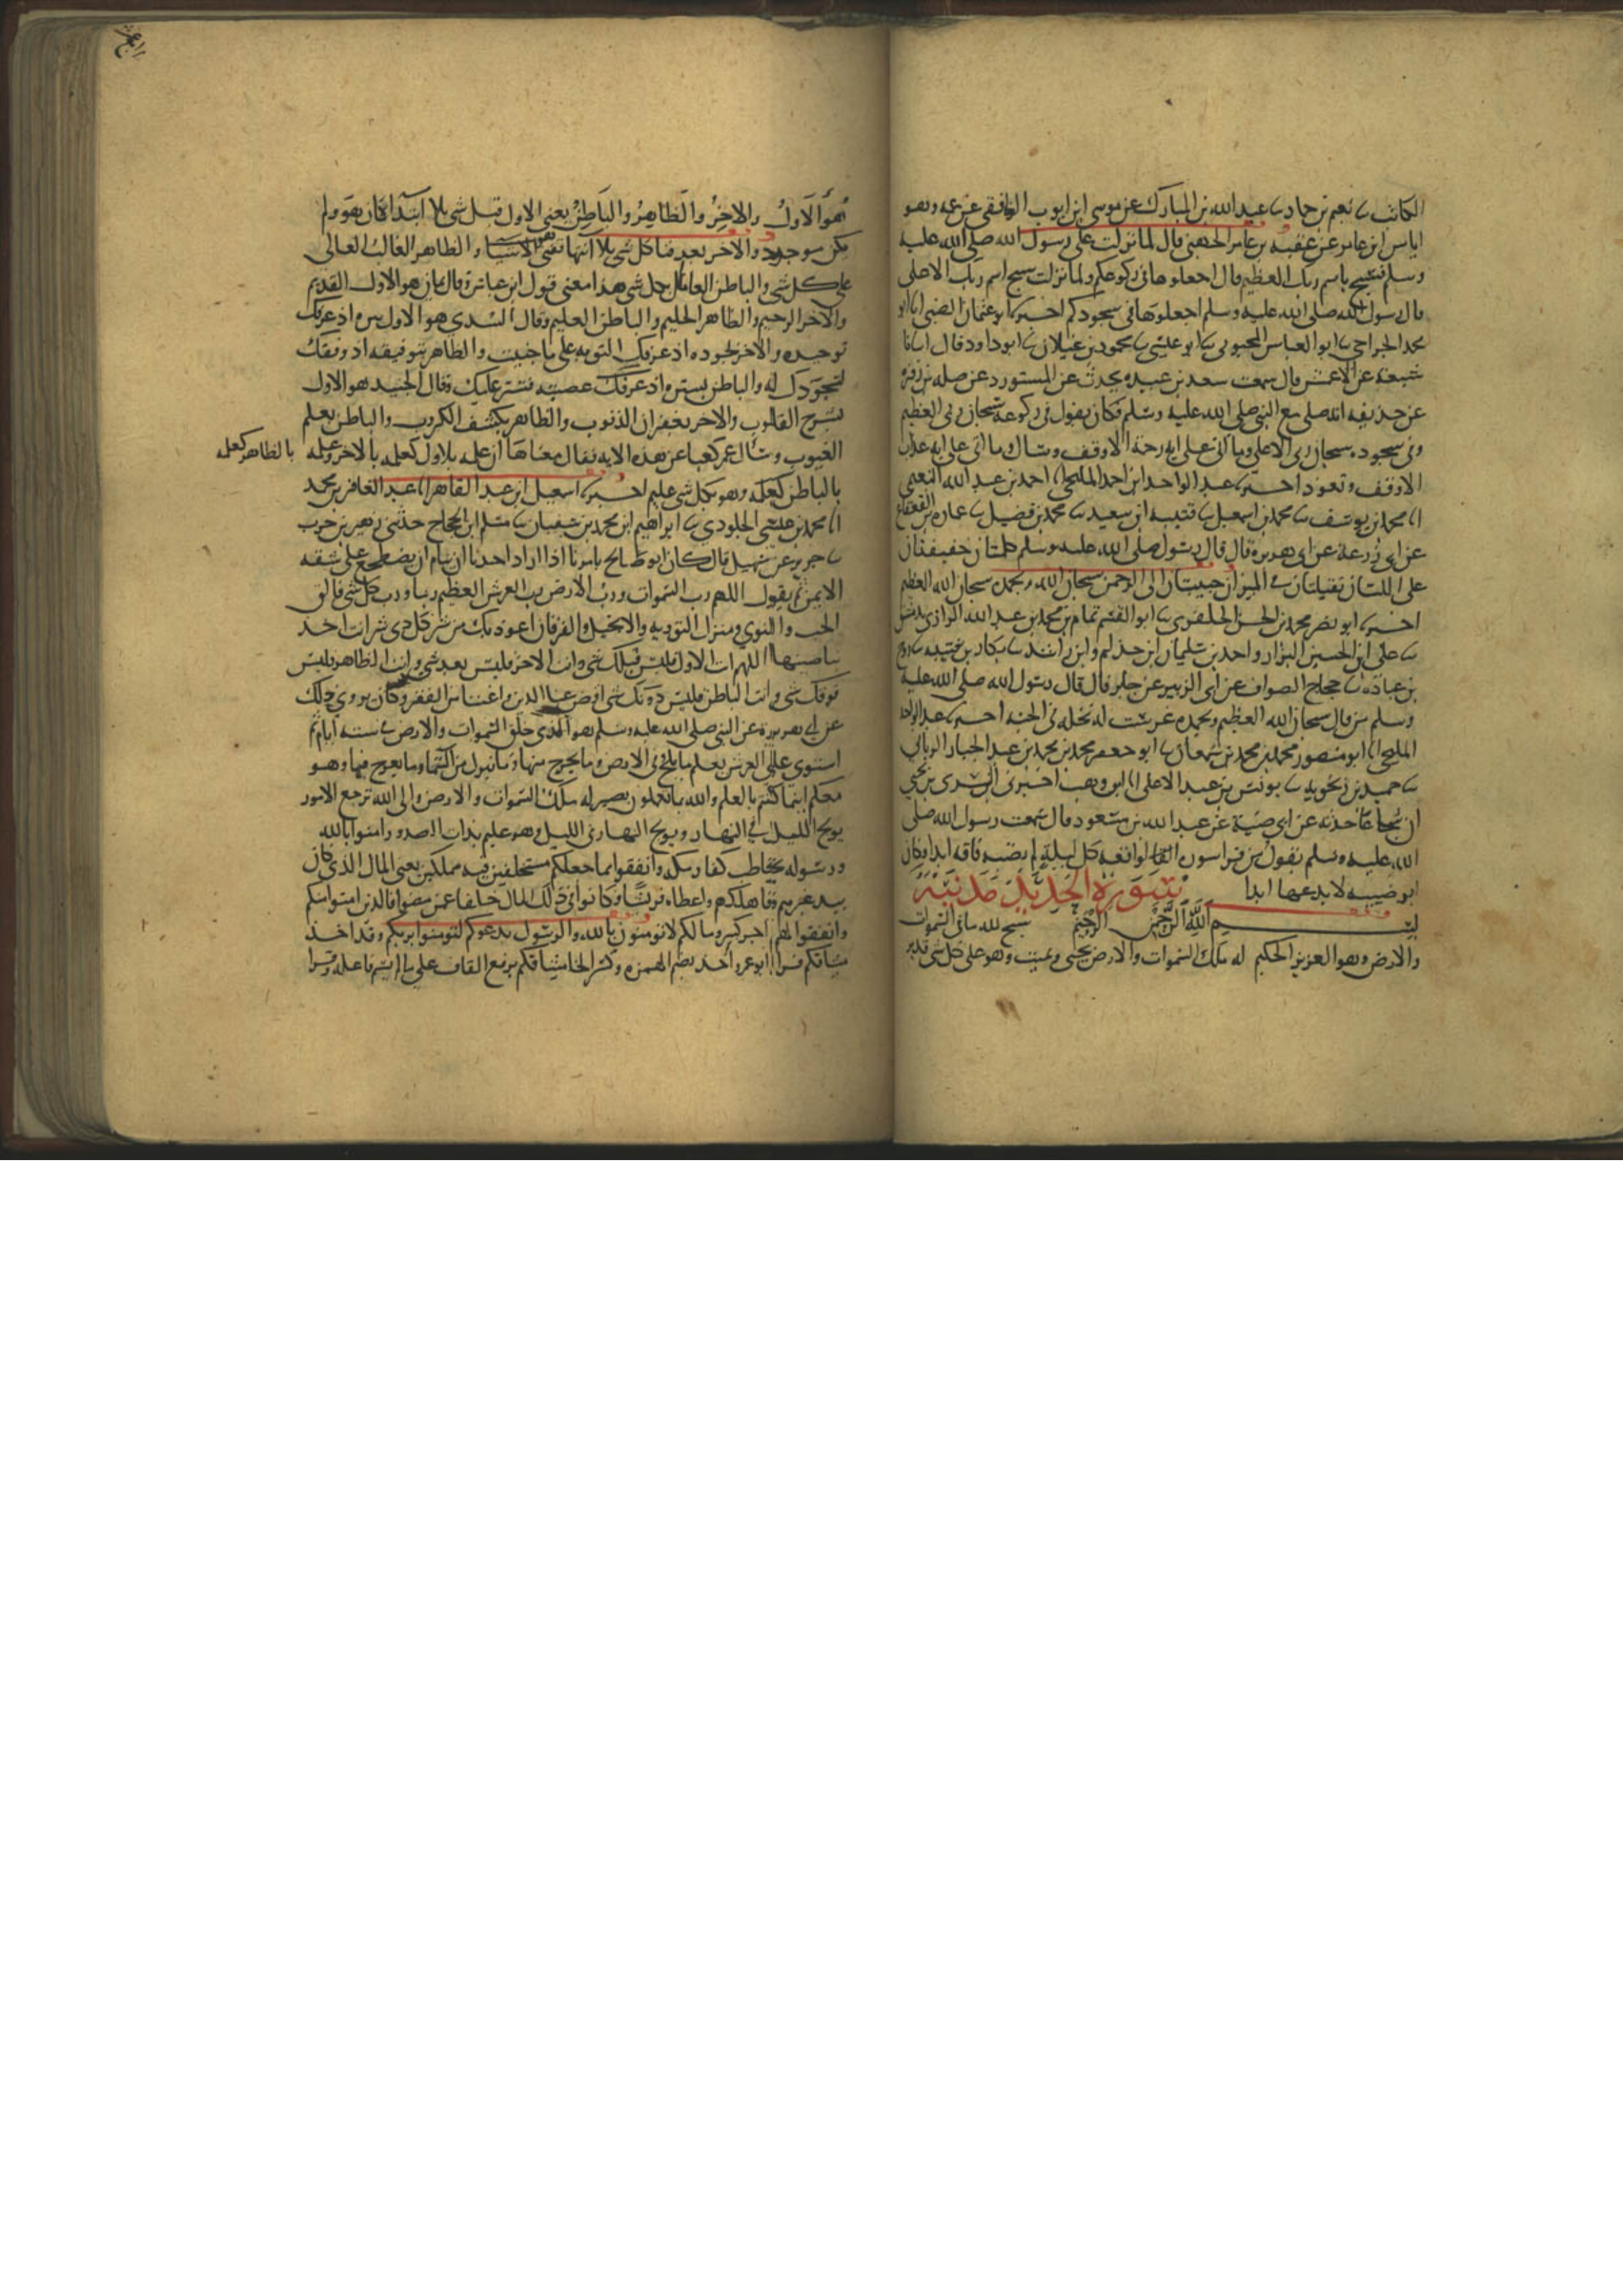 الكاتب ثنا نعيم بن حماد ثنا عبد الله بن المبارك عن موسى ابن ايوب الغافقي عن عمه وهو
اياس ابن عامر عن عقبه بن عامر الجهني قال لما نزلت على رسول الله صلى الله عليه
وسلم فسبح باسم ربك العظيم قال اجعلوها في ركوعكم ولما نزلت سبح اسم ربك الاعلى
قال رسول الله صلى الله عليه وسلم اجعلوها في سجودكم اخبرنا ابو عثمان الضبي انا ابو
محمد الجراحي ثنا ابو العباس المحبوبي ثنا ابو عيسى ثنا محمود بن غيلان ثنا ابو داود قال انبانا
شعبة عن الاعمش قال سمعت سعد بن عبيده يحدث عن المستورد عن صله بن زفر
عن حذيفه انه صلى مع النبي صلى الله عليه وسلم فكان يقول في ركوعه سبحان ربي العظيم
وفي سجوده سبحان ربي الاعلى وما اتى على ايه رحمة الا وقف وسال وما اتى على ايه عذاب
الا وقف وتعوذ اخبرنا عبد الواحد ابن احمد المليحي انا احمد بن عبد الله النعيمي
انا محمد بن يوسف ثنا محمد بن اسمعيل ثنا قتيبه ابن سعيد ثنا محمد بن فضيل ثنا عماره بن القعقاع
عن ابي زرعة عن ابي هريرة قال قال رسول صلى الله عليه وسلم كلمتان خفيفتان
على اللسان ثقيلتان في الميزان حبيبتان الى الرحمن سبحان الله وبحمده سبحان الله العظيم
اخبرنا ابو نصر محمد بن الحسن الجلفري ثنا ابو القسم تمام بن محمد بن عبد الله الرازي بدمشق
ثنا علي ابن الحسين البزار واحمد بن سليمان ابن حذلم وابن راشد ثنا بكار بن قتيبه ثنا روح
بن عباده ثنا حجاج الصواف عن ابي الزبير عن جابر قال قال رسول الله صلى الله عليه
وسلم من قال سبحان الله العظيم وبحمده غرست له نخله في الجنه اخبرنا عبد الواحد
المليحي انا ابو منصور محمد بن محمد بن سمعان ثنا ابو جعفر محمد بن محمد بن عبد الجبار الرياني
ثنا حميد بن زنجويه ثنا يونس بن عبد الاعلى انا ابن وهب اخبرني السري بن يحيى
ان شجاعا حدثه عن ابي ضيبة عن عبد الله بن مسعود قال سمعت رسول الله صلى
الله عليه وسلم يقول من قرا سوره الواقعه كل ليله لم يصبه فاقه ابدا وكان
ابو ضيبه لا يدعها ابدا سورة الحديد مدنية
بسم الله الرحمن الرحيم سبح لله ما في السموات
والارض وهو العزيز الحكيم له ملك السموات والارض يحيي ويميت وهو على كل شي قدير
هو الاول والاخر والظاهر والباطن يعني الاول قبل شي بلا ابتدا كان هو ولم
يكن موجود والاخر بعد فنا كل شي بلا انتها تفنى الاشيا والظاهر الغالب العالي
على كل شي والباطن العالم بكل شي هذا معنى قول ابن عباس وقال يمان هو الاول القديم
والاخر الرحيم والظاهر الحليم والباطن العليم وقال السدي هو الاول ببره اذ عرفك
توحيده والاخر بجوده اذ عرفك التوبه على ما جنيت والظاهر بتوفيقه اذ وفقك
لسجودك له والباطن بستره اذ عرفك عصيته فستر عليك وقال الجنيد هو الاول
بشرح القلوب والاخر بغفران الذنوب والظاهر بكشف الكروب والباطن بعلم
الغيوب وسال عمر كعبا عن هذه الايه فقال معناها ان علمه بالاول كعلمه بالاخر وعلمه
بالظاهر كعلمه
بالباطن كعلمه وهو بكل شي عليم اخبرنا اسمعيل ابن عبد القاهر انا عبد الغافر بن محمد
انا محمد بن عيسى الجلودي ثنا ابراهيم ابن محمد بن سفيان ثنا مسلم ابن الحجاج حدثني زهير بن حرب
ثنا جرير عن سهيل قال كان ابو صالح يامرنا اذا اراد احدنا ان ينام ان يضطجع على شقه
الايمن ثم يقول اللهم رب السموات ورب الارض رب العرش العظيم ربنا ورب كل شي فالق
الحب والنوي ومنزل التوريه والانجيل والفرقان اعوذ بك من شر كل ذي شر انت اخذ
بناصيتها اللهم انت الاول فليس قبلك شي وانت الاخر فليس بعدك شي وانت الظاهر فليس
فوقك شي وانت الباطن فليس دونك شي اقض عنا الدين واغننا من الفقر وكان يروي ذلك
عن ابي هريرة عن النبي صلى الله عليه وسلم هو الذي خلق السموات والارض في ستة ايام ثم
استوى على العرش يعلم ما يلج في الارض وما يخرج منها وما ينزل من السما وما يعرج فيها وهو
معكم اينما كنتم بالعلم والله بما تعملون بصير له ملك السموات والارض والى الله ترجع الامور
يولج الليل في النهار ويولج النهار في الليل وهو عليم بذات الصدور امنوا بالله
ورسوله يخاطب كفار مكه وانفقوا مما جعلكم مستخلفين فيه مملكين يعني المال الذي كان
بيد غيرهم فاهلكهم واعطاه قريشا وكانوا في ذلك المال خلفا عمن مضوا فالذين امنوا منكم
وانفقوا لهم اجر كبير وما لكم لا تومنون بالله والرسول يدعوكم لتومنوا بربكم وقد اخذ
ميثاقكم قرا ابو عمرو اخذ بضم الهمزه وكسر الخا ميثاقكم برفع القاف على ما لم يسم فاعله وقرا